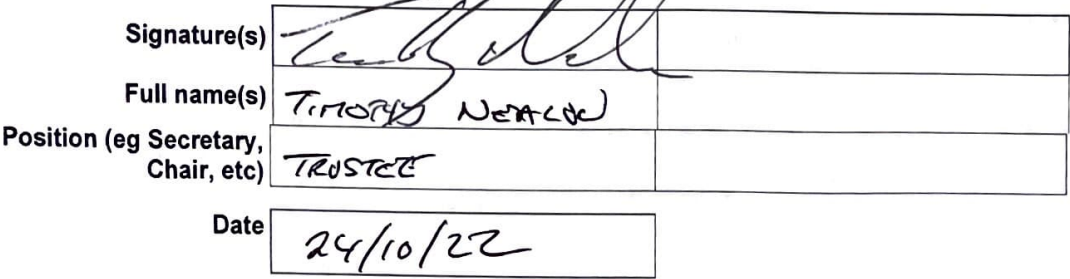 Signature(s)
Full name(s) TIMOTHY
Position (eg Secretary,
Chair, etc) TRUSTEE
Date 24/10/22